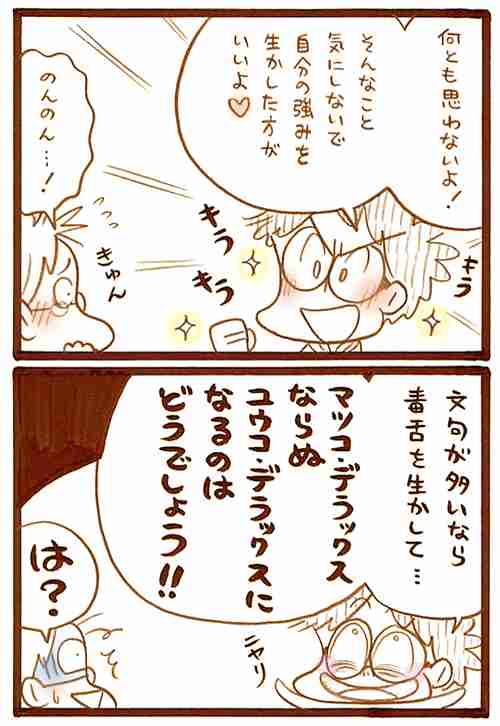 何とも思わないよ！
そんなこと
気にしないで
自分の強みを
生かした方が
いいよ♡
のんのん…！
キラ
キラ
キラ
きゅん
文句が多いなら
毒舌を生かして…
マツコ・デラックス
ならぬ
ユウコ・デラックスに
なるのは
どうでしょう!!
は？
ニヤリ